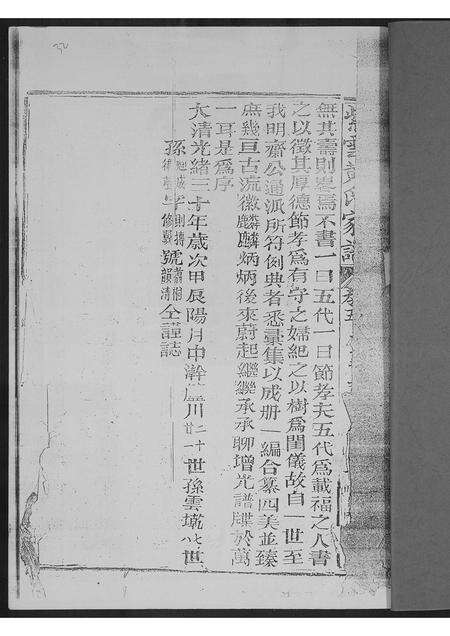 無其壽則畧焉不書一曰五代一曰節孝夫五代為載福之人書
之以徵其厚德節孝為有守之婦紀之以樹為閨儀故自一世至
我明齋公過派所符例典者悉彚集以成册一編合纂四美並臻
庶幾亘古流徽麟麟炳炳後來蔚起繼繼承承聊增光譜牒於萬
一耳是為序
大清光緒三十年歲次甲辰陽月中澣 川二十世孫雲 八七世
孫 字 號 仝謹誌
氏家譜